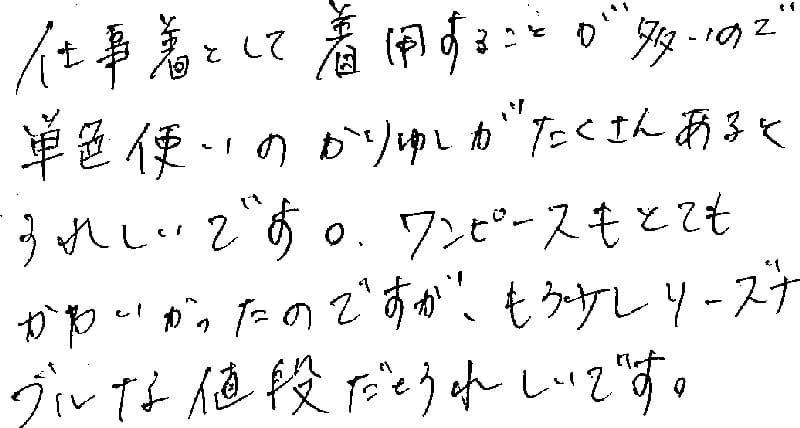 仕事着として着用することが多いので
単色使いのかりゆしがたくさんあると
うれしいです。ワンピースもとても
かわいかったのですが、もう少しリーズナ
ブルな値段だとうれしいです。